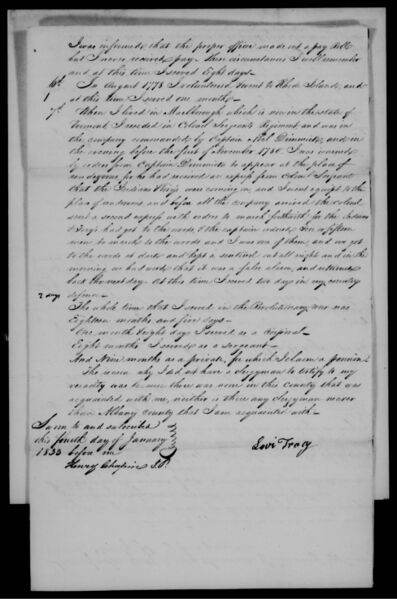 I was informed that the proper officer made out a pay Roll
but I never received pay. these circumstances I well remember
and at this time I served Eight days.
6th In August 1778 I volunteered went to Rhode Island, and
1 at this time I served one month.
7th When I lived in Marlborough which is now in the state of
Vermont, I resided in Colonel Sergeants Regiment and was in
the company commanded by Captain Abel Dimmick and in
the evening before the first of November 1780. I was warned
by orders from Captain Dimmick to appear at the place of
rendezvous for he had received an express from Colonel Sergeant
that the Indians & Torys were coming, and I went equipt to the
place of rendezvous and before all the company arrived the Colonel
sent a second express with orders to march forthwith for the Indians
& Torys had got to the woods & the captain ordered ten or fifteen
men to march to the woods and I was one of them and we got
to the woods at dark and kept a sentinel out all night and in the
morning we had word that it was a false alarm, and returned
back the next day. At this time I served two days in my country
2 days defence.
The whole time that I served in the Revolutionary war was
Eighteen months and five days.
One month & eight days I served as a Corporal
Eight months I served as a Sergeant.
And Nine months as a private, for which I claim a pension.
The reason why I did not have a clergyman to certify to my
veracity was because there was none in this County that was
acquainted with me, neither is there any clergyman nearer
than Albany County that I am acquainted with.
Sworn to and subscribed
this fourth day of January
1833 before me
Levi Tracy
Henry J.P.